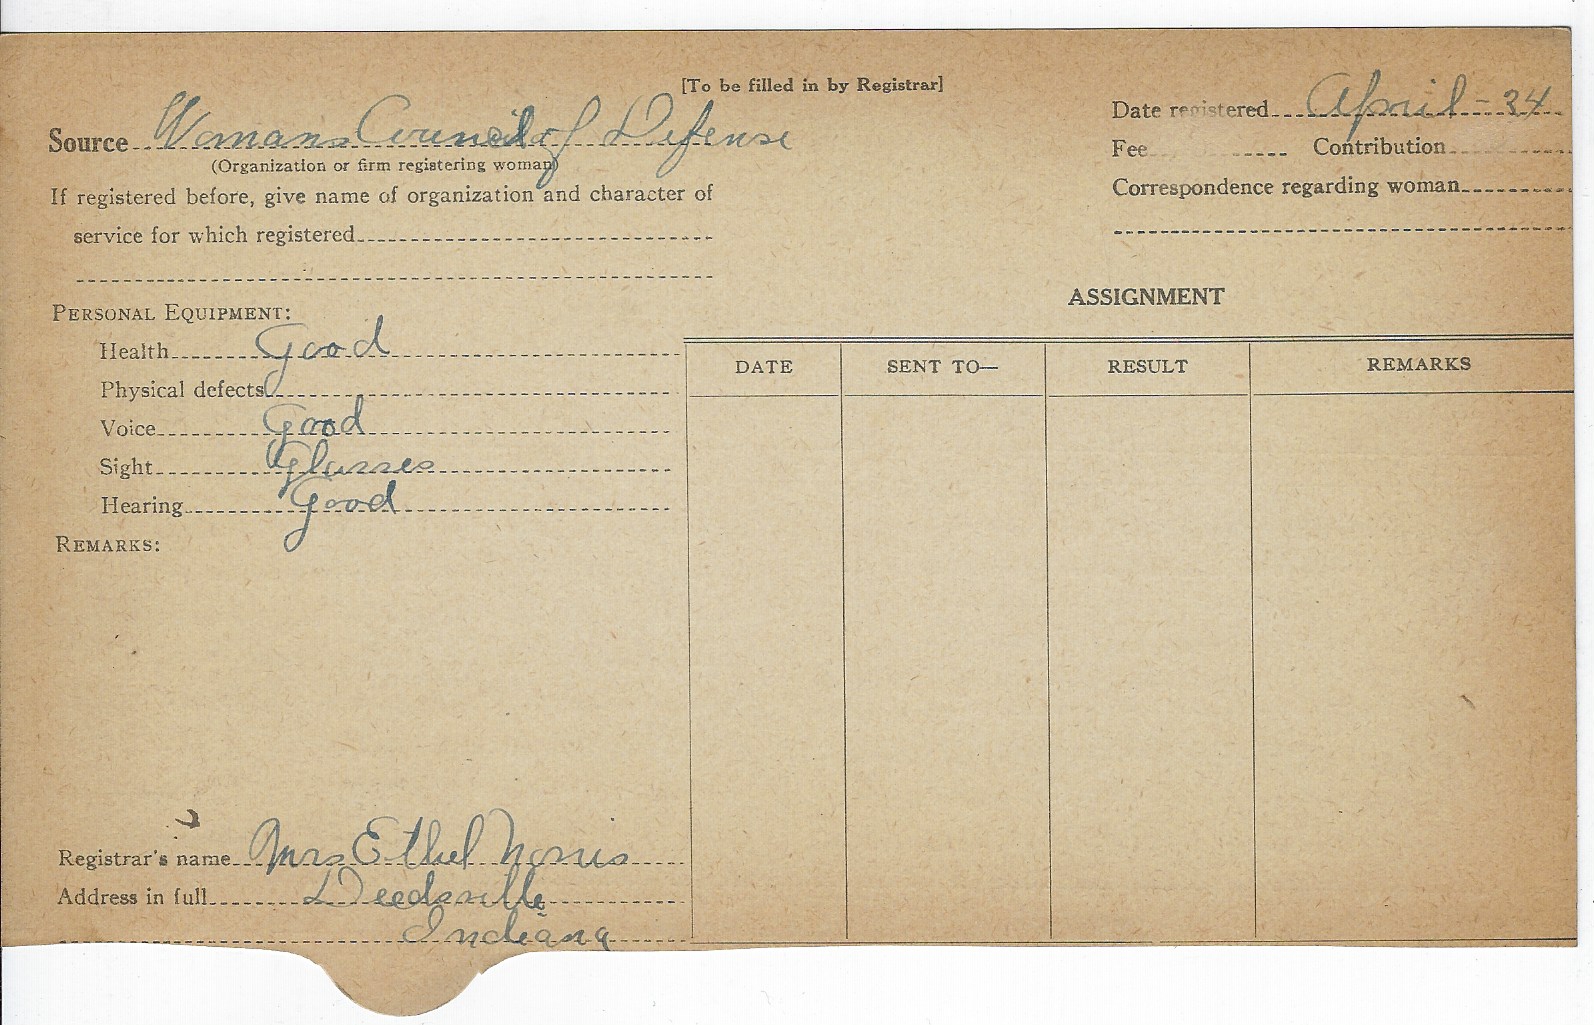 [To be filled in by Registrar]
Source Womans Council of Defense
(Organization or firm registering woman)
If registered before, give name of organization and character of
service for which registered
Date registered April - 34
Fee Contribution
Correspondence regarding woman
PERSONAL EQUIPMENT:
Health Good
Physical defects
Voice Good
Sight Glasses
Hearing Good
REMARKS:
ASSIGNMENT
DATE SENT TO— RESULT REMARKS
Registrar's name Mrs Ethel Norris
Address in full Deedsville
Indiana